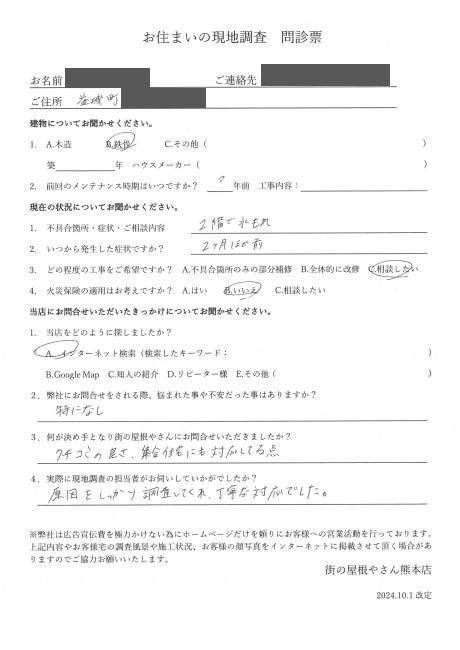 お住まいの現地調査　問診票
お名前　ご連絡先
ご住所　益城町
建物についてお聞かせください。
1.　A.木造　B.鉄骨　C.その他（　）
築　年　ハウスメーカー（　）
2.　前回のメンテナンス時期はいつですか？　?　年前　工事内容：
現在の状況についてお聞かせください。
1.　不具合箇所・症状・ご相談内容　2階で水もれ
2.　いつから発生した症状ですか？　2ヶ月ほど前
3.　どの程度の工事をご希望ですか？　A.不具合箇所のみの部分補修　B.全体的に改修　C.相談したい
4.　火災保険の適用はお考えですか？　A.はい　B.いいえ　C.相談したい
当店にお問合せいただいたきっかけについてお聞かせください。
1.　当店をどのように探しましたか？
A.インターネット検索（検索したキーワード：　）
B.Google Map　C.知人の紹介　D.リピーター様　E.その他（　）
2．弊社にお問合せをされる際、悩まれた事や不安だった事はありますか？
特になし
3．何が決め手となり街の屋根やさんにお問合せいただきましたか？
クチコミの良さ、集合住宅にも対応してる点
4．実際に現地調査の担当者がお伺いしていかがでしたか？
原因をしっかり調査してくれ、丁寧な対応でした。
※弊社は広告宣伝費を極力かけない為にホームページだけを頼りにお客様への営業活動を行っております。
上記内容やお客様宅の調査風景や施工状況、お客様の顔写真をインターネットに掲載させて頂く場合があ
りますのでご協力お願いいたします。
街の屋根やさん熊本店
2024.10.1 改定